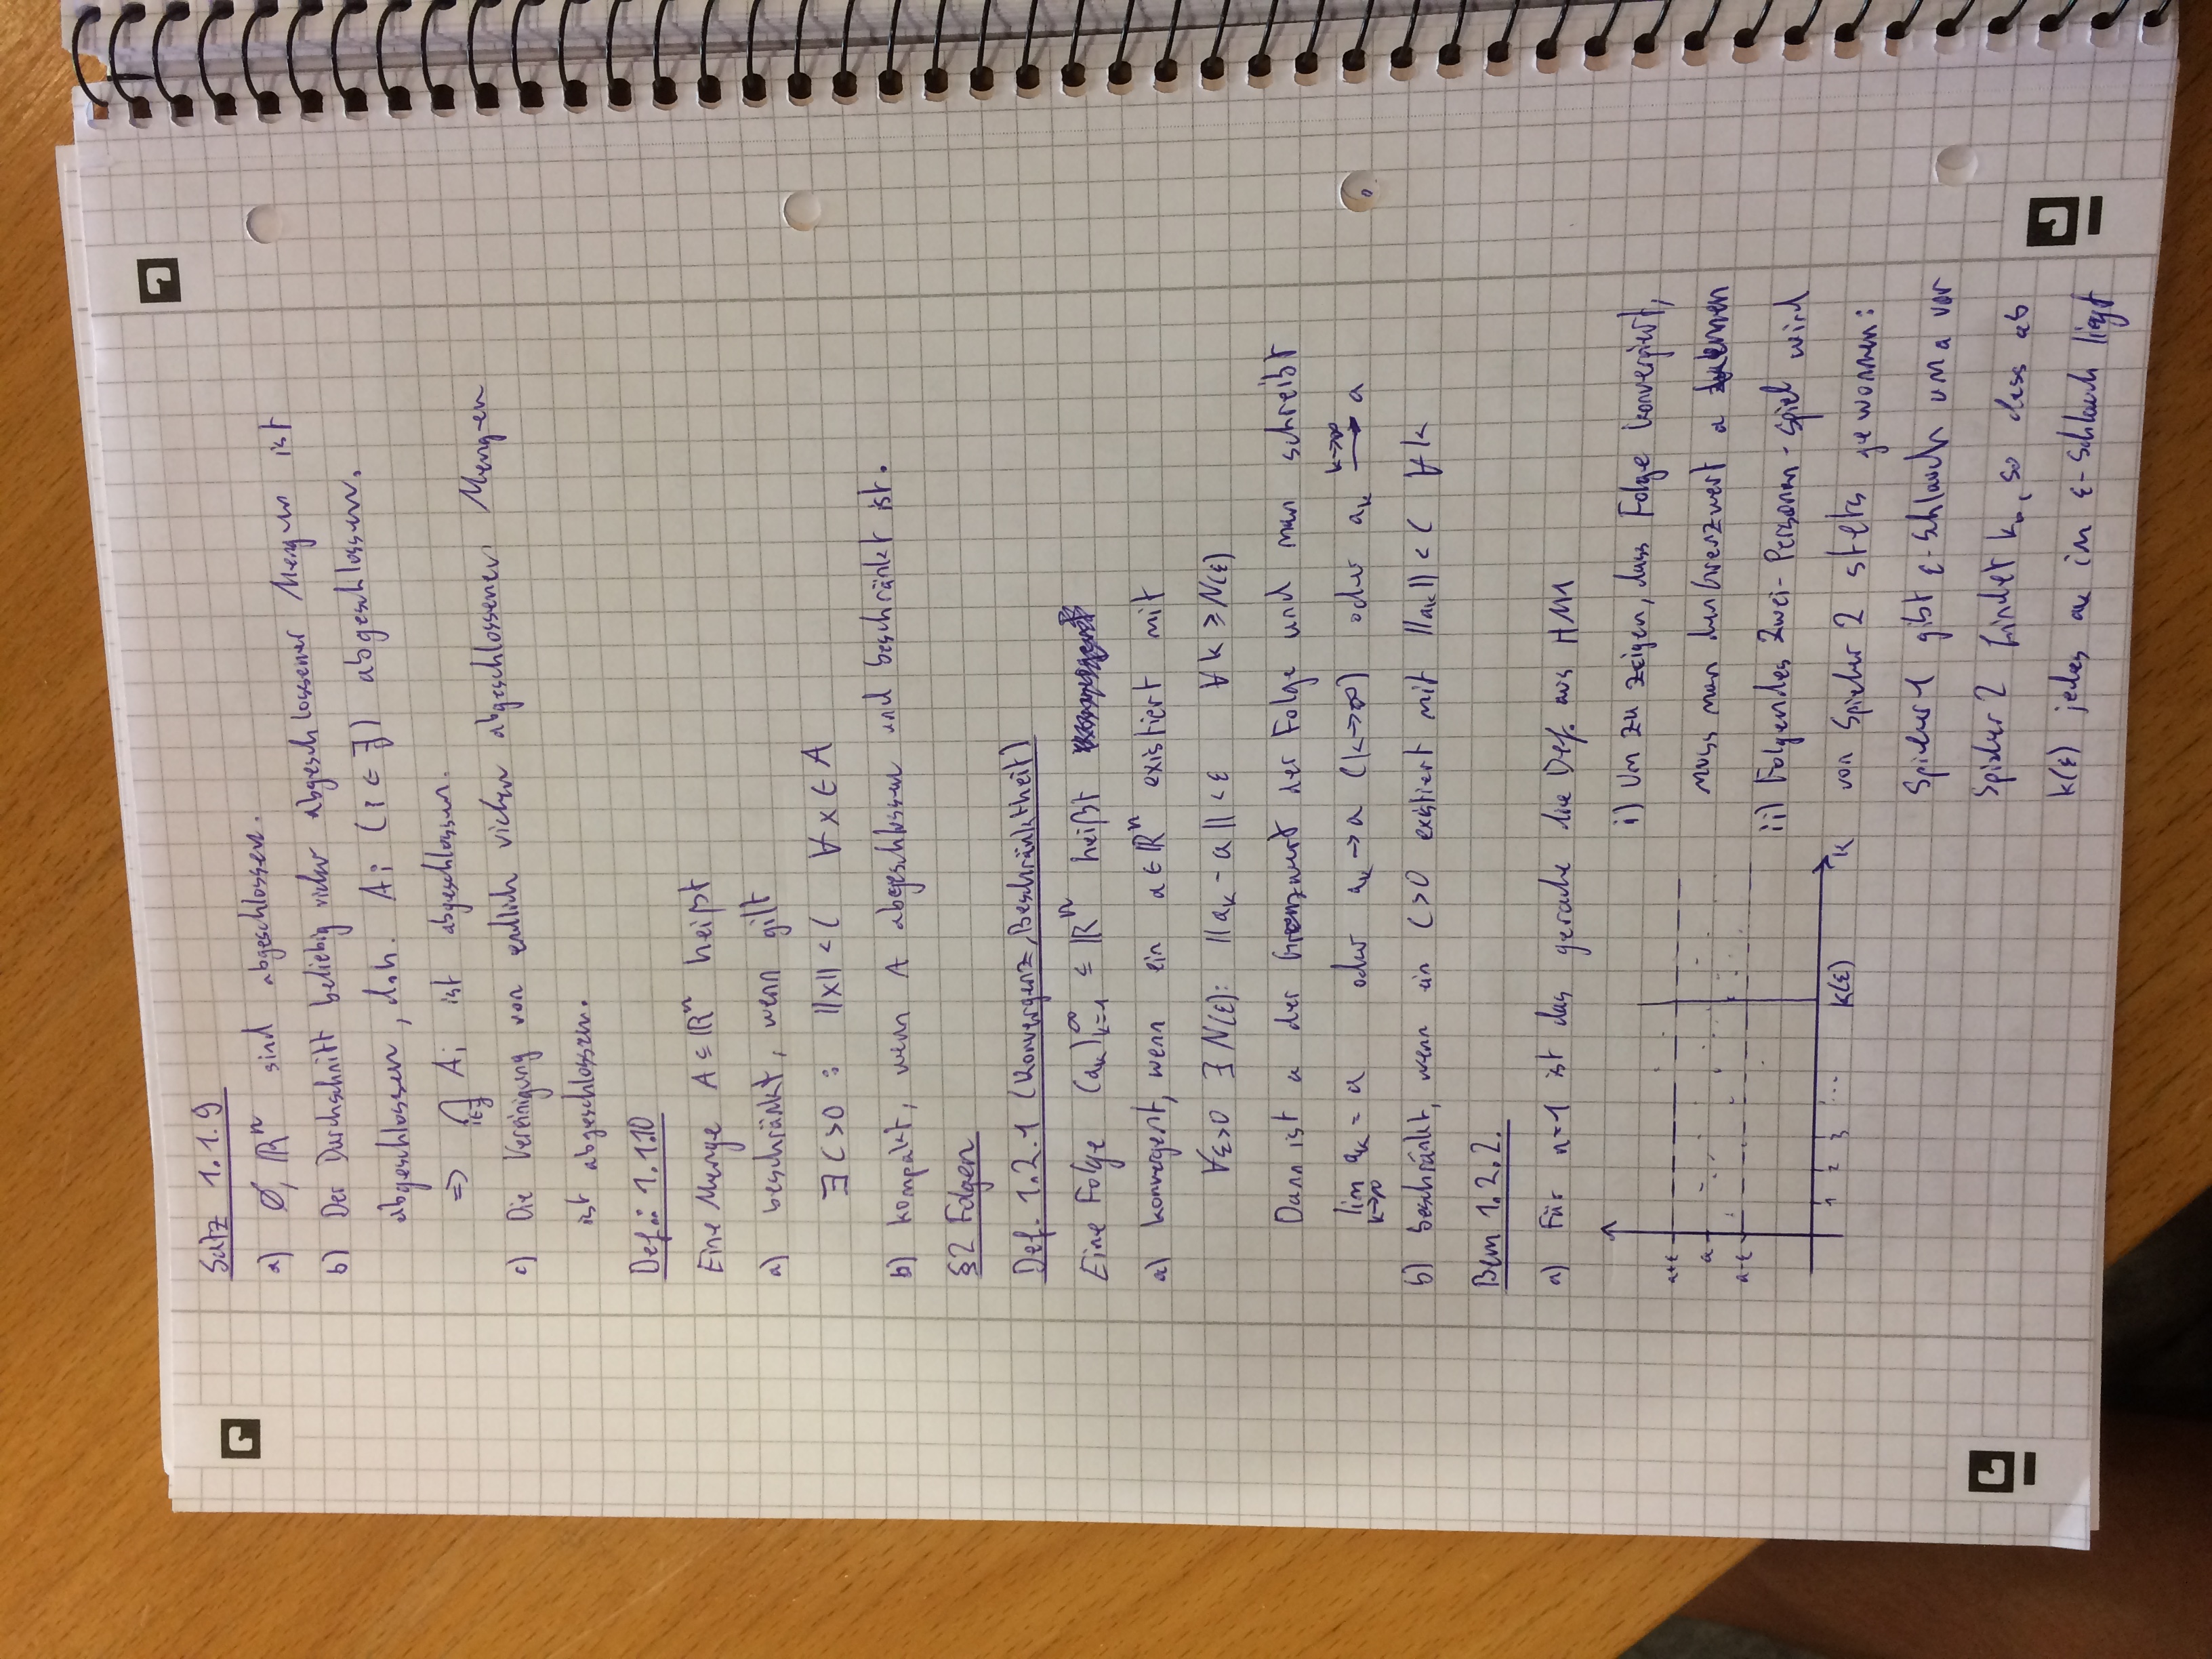 Satz 1.1.9
a) Ø, ℝⁿ sind abgeschlossen.
b) Der Durchschnitt beliebig vieler abgeschlossener Mengen ist
abgeschlossen, d.h. Aᵢ (i ∈ J) abgeschlossen.
=> ⋂ Aᵢ ist abgeschlossen.
i∈J
c) Die Vereinigung von endlich vielen abgeschlossenen Mengen
ist abgeschlossen.
Def.: 1.1.10
Eine Menge A ⊆ ℝⁿ heißt
a) beschränkt, wenn gilt
∃ C>0 : ||x|| < C ∀ x ∈ A
b) kompakt, wenn A abgeschlossen und beschränkt ist.
§2 Folgen
Def. 1.2.1 (Konvergenz, Beschränktheit)
Eine Folge (aₖ)ₖ₌₁^∞ ⊆ ℝⁿ heißt
a) konvergent, wenn ein a ∈ ℝⁿ existiert mit
∀ε>0 ∃ N(ε): ||aₖ - a|| < ε ∀ k ≥ N(ε)
Dann ist a der Grenzwert der Folge und man schreibt
lim aₖ = a oder aₖ → a (k→∞) oder aₖ →(k→∞) a
k→∞
b) beschränkt, wenn ein C>0 existiert mit ||aₖ|| < C ∀ k
Bem 1.2.2.
a) Für n=1 ist das gerade die Def. aus HM1
a+ε
a
a-ε
1 2 3 ... k(ε) k
i) Um zu zeigen, dass Folge konvergiert,
muss man den Grenzwert a kennen
ii) Folgendes Zwei-Personen-Spiel wird
von Spieler 2 stets gewonnen:
Spieler 1 gibt ε-Schlauch um a vor
Spieler 2 findet k₀, so dass ab
k(ε) jedes aₖ im ε-Schlauch liegt